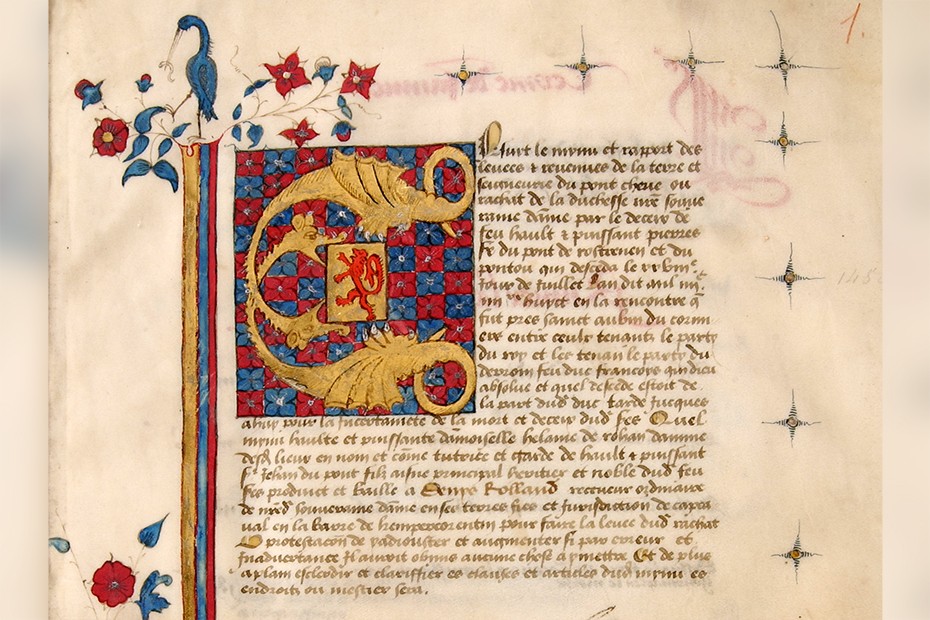 1.
Ensuit le mynu et raport des
levees & revenues de la terre et
seigneurie du pont cheue ou
rachat de la duchesse nre souve
raine dame par le deceix de
feu hault & puissant pierres
sr du pont de rostrenen et du
ponton qui deceda le
jour de juillet lan dit mil iiijc
iiijxx huyt en la rencontre q̃
fut pres sainct aubin du cormi
ere entre ceulx tenants le party
du roy et les tenans le party du
deproin feu duc francoys que dieu
absolve et quel decede estoit de
la part dud duc tarde jucques
a huy pour la incertainete de la mort et deceix dud sr Quel
mynu haulte et puissante damoiselle helaine de rohan damme
desd lieux en nom et côme tutrice et garde de hault & puissant
sr Jehan du pont filz aisne principal heritier et noble dud feu
sr produict et baille a Denys Rolland receveur ordinaire
de mad souveraine dame en ses terres fiez et jurisdiction de capca
val en la barre de kempercorentin pour faire la levee dud rachat
O protestacõn de y adiouster et augmenter si par erreur et
Inadvertance Il avoit obmis aucune chose a y mettre Et de plus
a plain esclercir et clariffier es clauses et articles dud mynu es
endroits ou mestier sera.
145